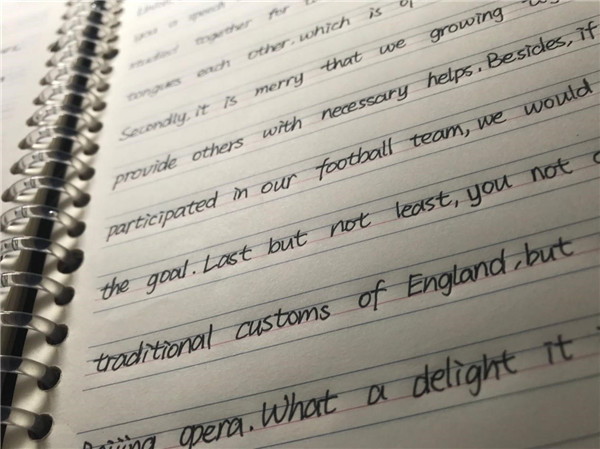 you a speech for
studied together for
tongues each other. which is of
Secondly. it is merry that we growing
provide others with necessary helps. Besides, if
participated in our football team, we would
the goal. Last but not least, you not
traditional customs of England, but
Beijing opera. What a delight it